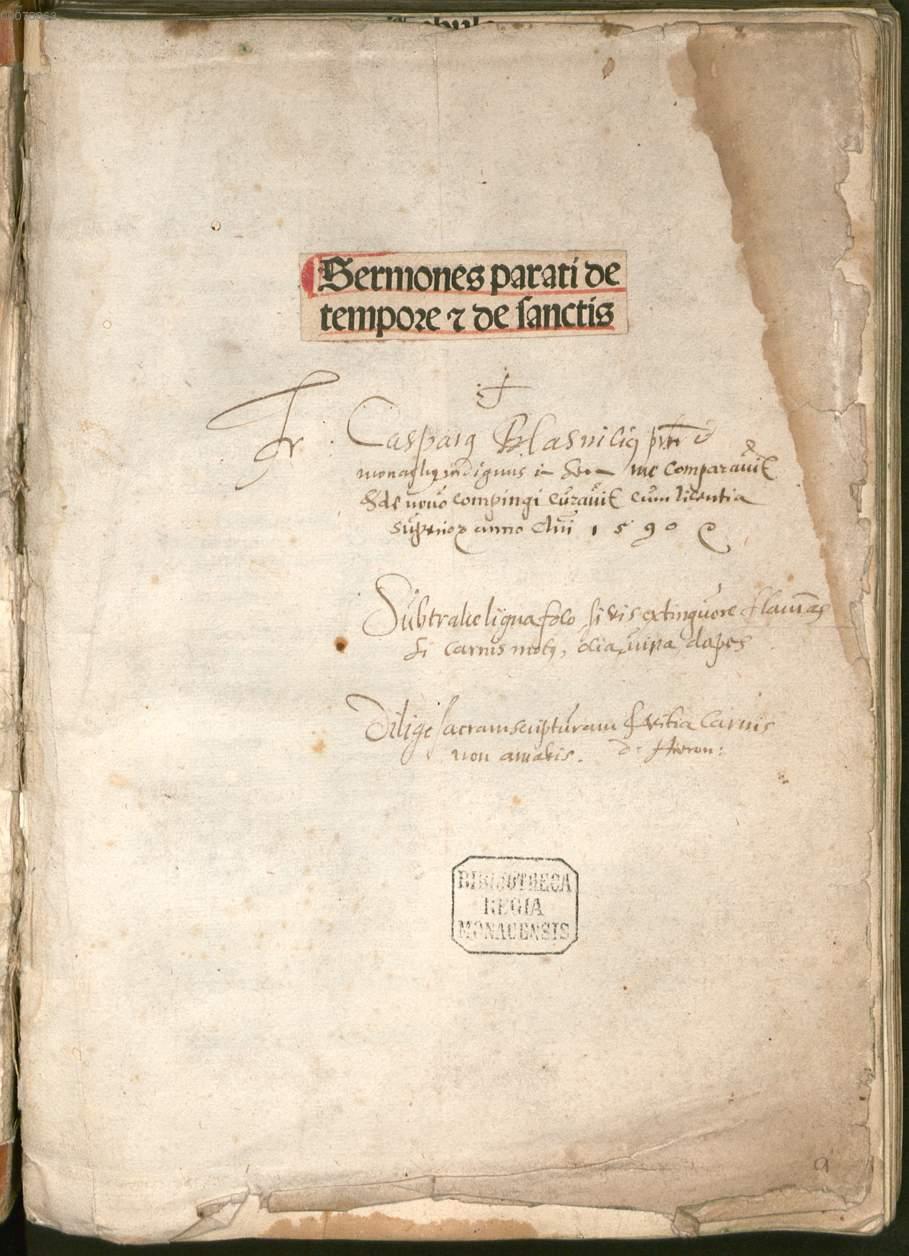 Sermones parati de
tempore ⁊ de sanctis
Fr. Casparꝰ Blasviliꝰ
monachꝰ indignus me comparavit
& de novo compingi curavit cum licentia
anno dni 1590
Subtrahe ligna foco si vis extinguere flam̄as
si carnis motꝰ, otia, vina, dapes
Dilige sacram scripturam & vitia carnis
non amabis. d: Hieron:
BIBLIOTHECA
REGIA
MONACENSIS